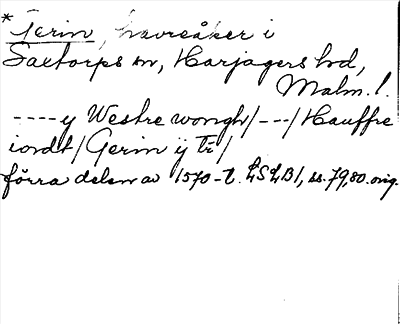 *Gerim, havreåker i
Saxtorps sn, Harjagers hd,
Malm. l.
---- y Westre wongh/ ---/ Hauffre
iordt/ Gerim ÿ tr/
förra delen av 1570-t. LSLB1, ss. 79, 80. orig.